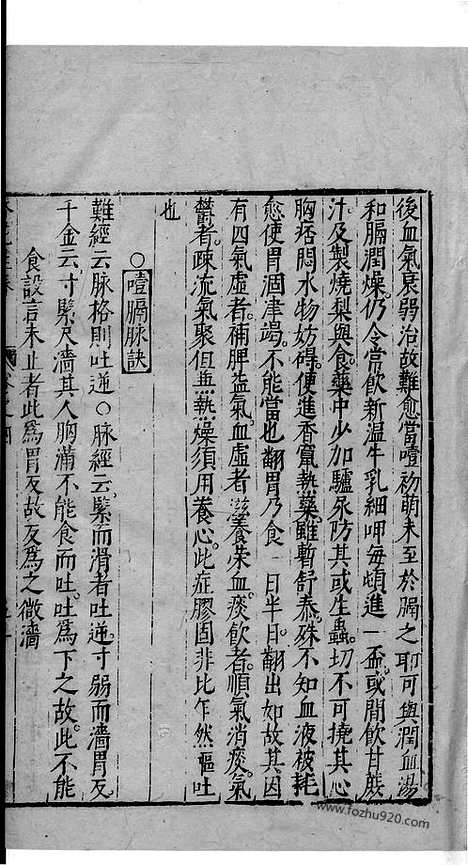 後血氣衰弱治故難愈當噎初萌未至於膈之耶可與潤血湯
和膈潤燥仍令常飲新温牛乳細呷每頓進一盃或間飲甘蔗
汁及製燒梨與食藥中少加驢尿防其或生蟲切不可撓其心
胸痞悶水物妨碍便進香竄熱藥雖暫舒泰殊不知血液被耗
愈使胃涸津竭不能當也翻胃乃食一日半日翻出如故其因
有四氣虚者補脾益氣血虚者滋養荣血痰飲者順氣消痰氣
欝者疎流氣聚但無熱燥須用養心此症膠固非比乍然嘔吐
也
○噎膈脉訣
難經云脉格則吐逆○脉經云緊而滑者吐逆寸弱而濇胃反
千金云寸緊尺濇其人胸滿不能食而吐吐為下之故此不能
食設言未止者此為胃反故反為之微濇
www.fozhu920.com